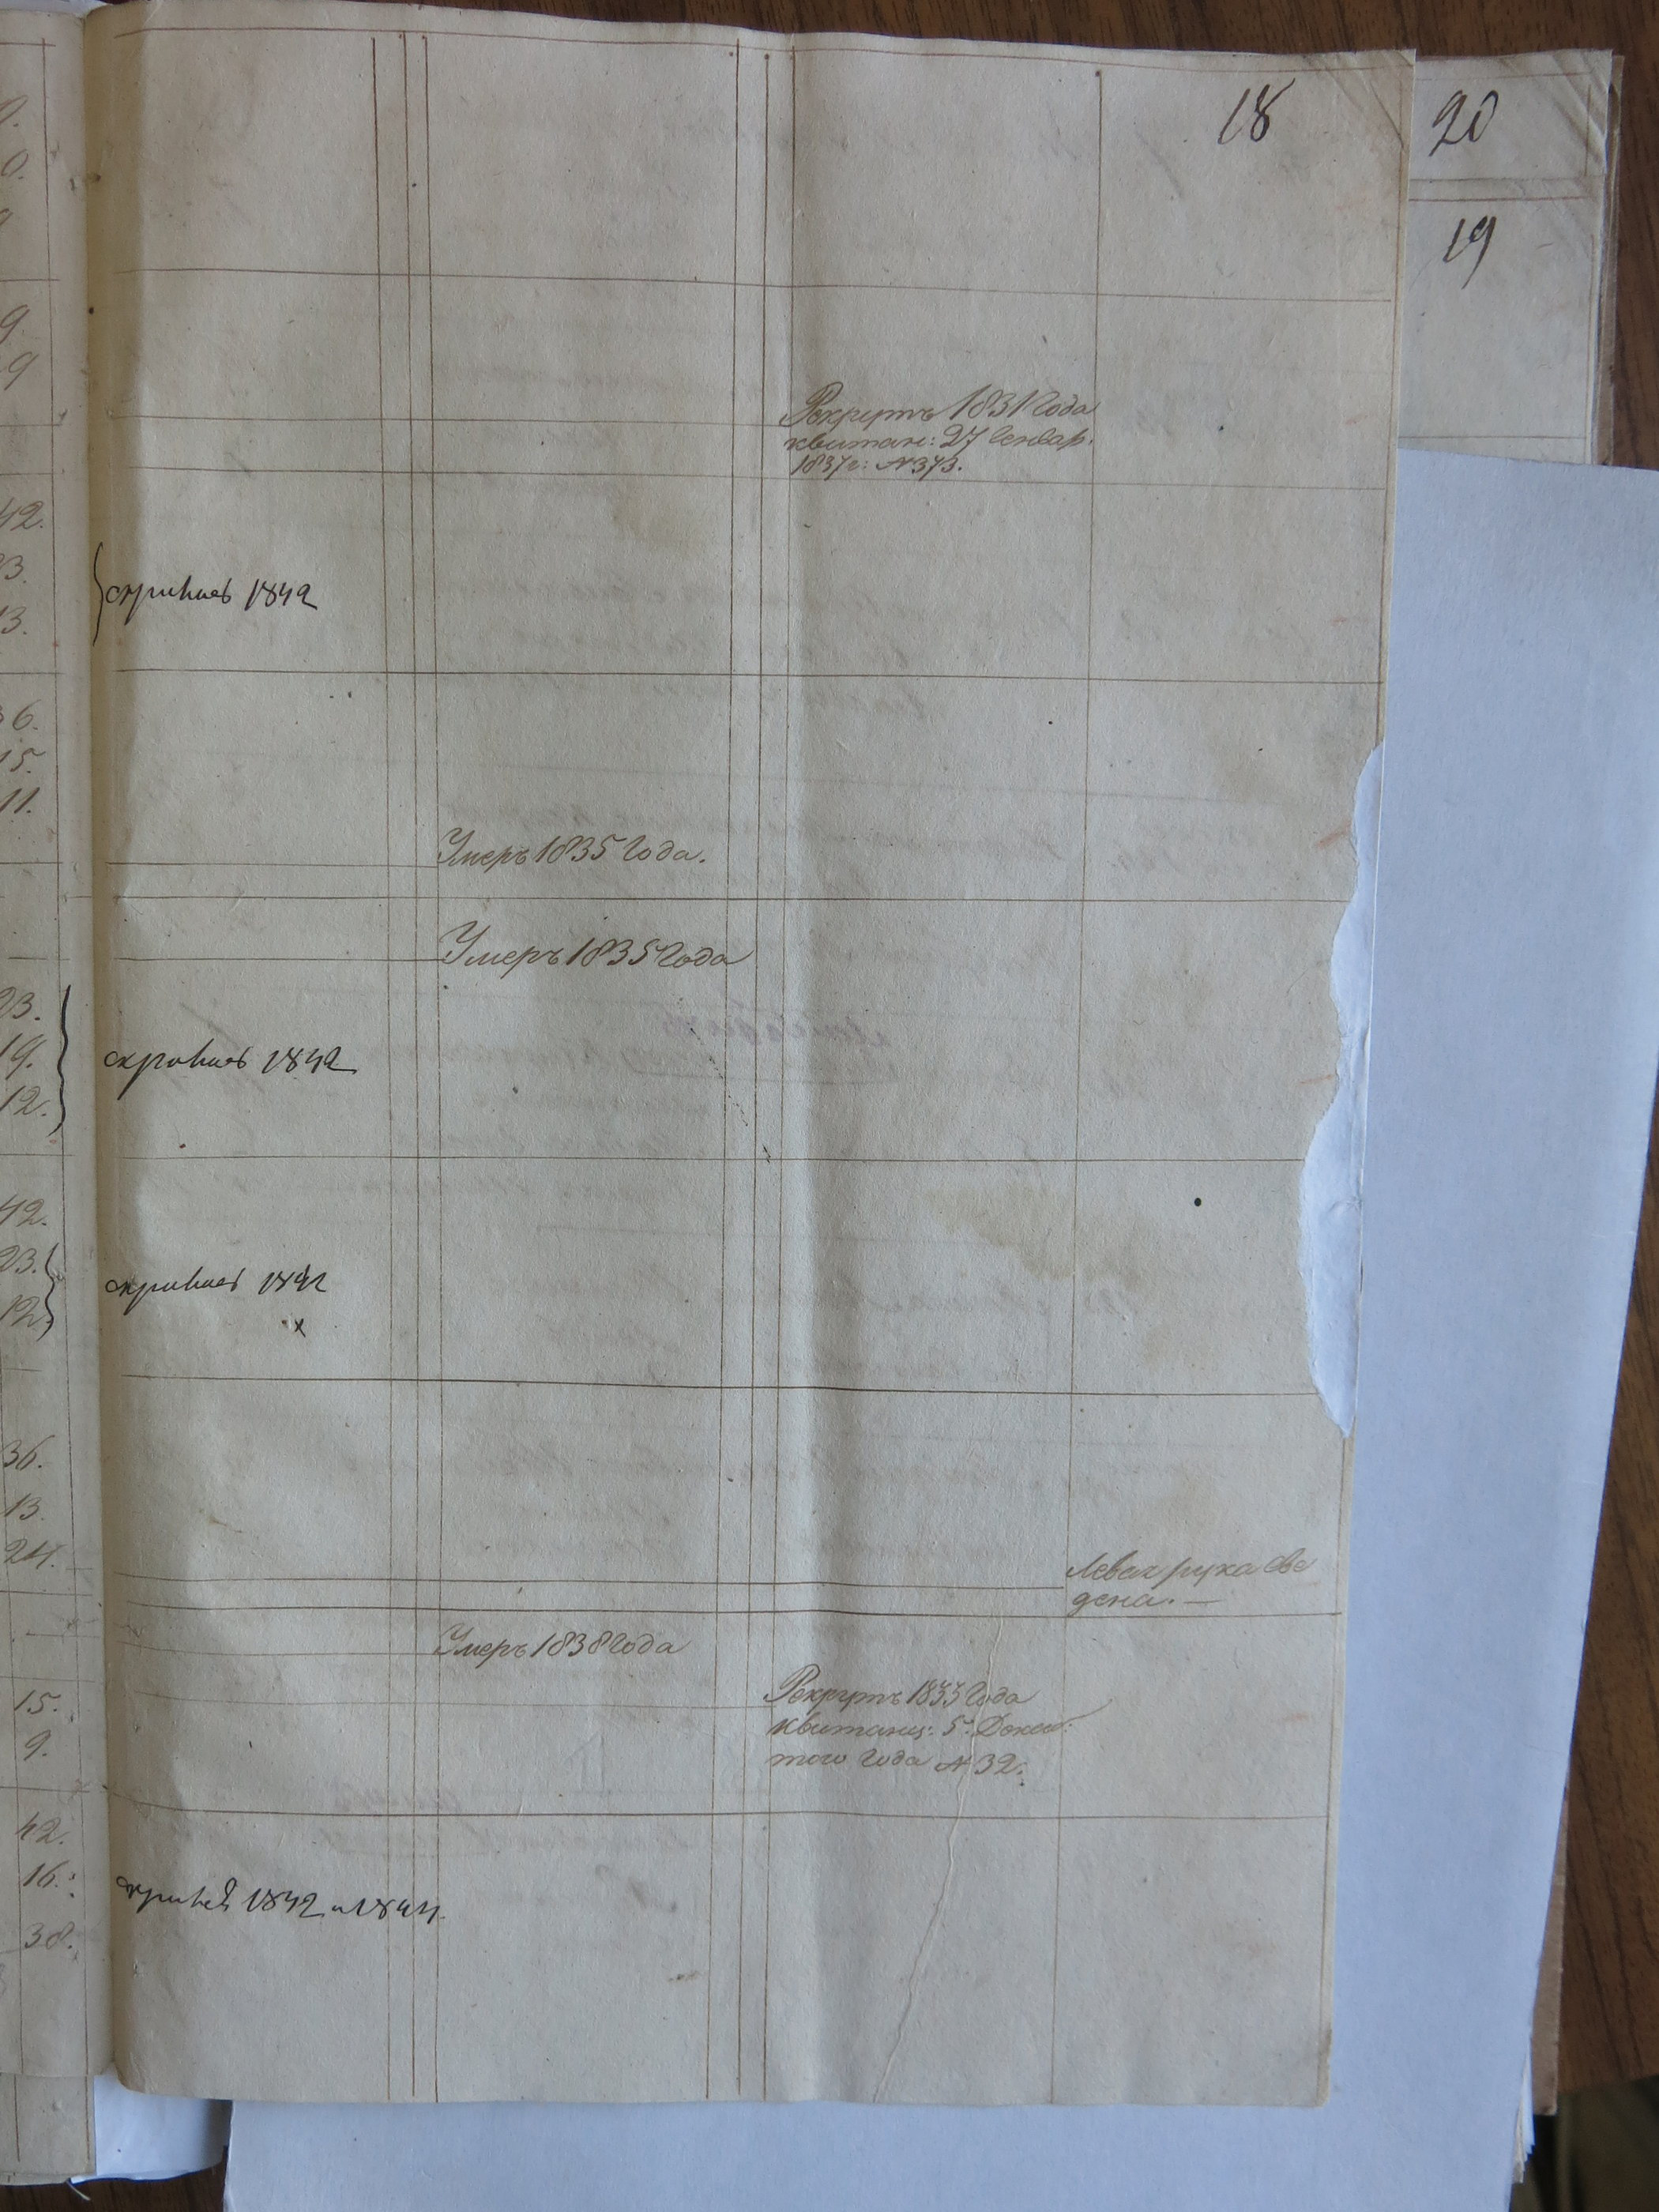 18
20
19
9.
0.
9
9.
9
Рекрутъ 1831 Года
квитан: 27 Генвар.
1837 г: №373.
42.
3.
13.
1842
36.
15.
11.
Умеръ 1835 Года.
Умеръ 1835 Года
23.
19.
12.
1842
42.
23.
12
1842
x
36.
13.
24.
Левая рука све
дена. —
Умеръ 1838 Года
15.
9.
Рекрутъ 1833 Года
квитанц: 5. Декаб:
того Года № 32.
42.
16.
38.
1842 и 1844.